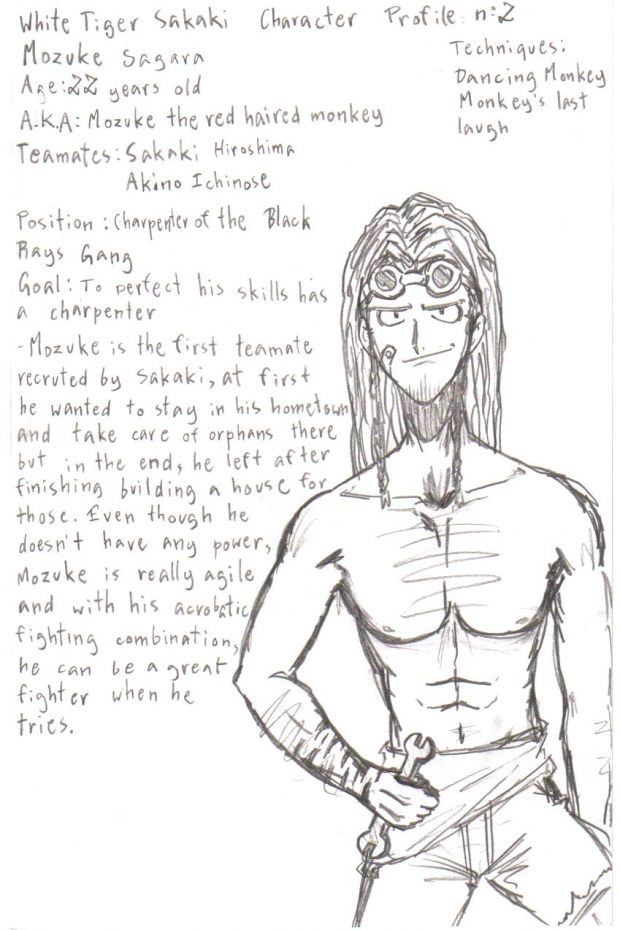 White Tiger Sakaki Character Profile n:2
Mozuke Sagara
Age:22 years old
A.K.A: Mozuke the red haired monkey
Teamates: Sakaki Hiroshima
Akino Ichinose
Position: Charpenter of the Black
Rays Gang
Goal: To perfect his skills has
a charpenter
-Mozuke is the first teamate
recruted by Sakaki, at first
he wanted to stay in his hometown
and take care of orphans there
but in the end, he left after
finishing building a house for
those. Even though he
doesn't have any power,
Mozuke is really agile
and with his acrobatic
fighting combination,
he can be a great
fighter when he
tries.
Techniques:
Dancing Monkey
Monkey's last
laugh